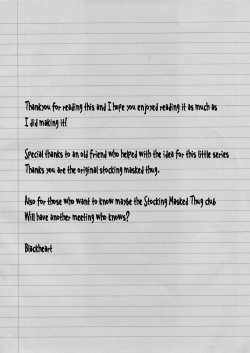 Thankyou for reading this and I hope you enjoyed reading it as much as
I did making it!
Special thanks to an old friend who helped with the idea for this little series
Thanks you are the original stocking masked thug.
Also for those who want to know maybe the Stocking Masked Thug club
Will have another meeting who knows?
Blackheart